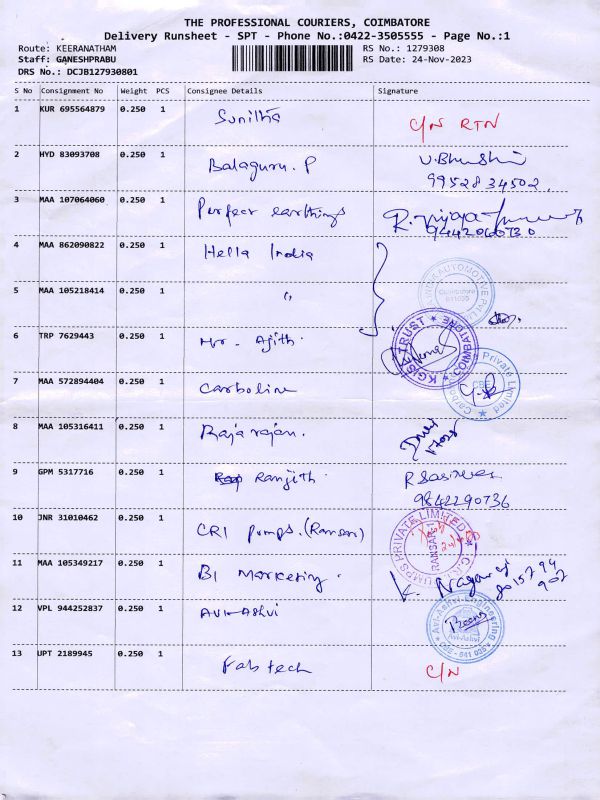 THE PROFESSIONAL COURIERS, COIMBATORE
Delivery Runsheet - SPT - Phone No.:0422-3505555 - Page No.:1
Route: KEERANATHAM RS No.: 1279308
Staff: GANESHPRABU RS Date: 24-Nov-2023
DRS No.: DCJB127930801
S No Consignment No Weight PCS Consignee Details Signature
1 KUR 695564879 0.250 1 Sunitha C/N RTN
2 HYD 83093708 0.250 1 Balaguru. P
9952834502.
3 MAA 107064060 0.250 1 Perfect earthings
4 MAA 862090822 0.250 1 Hella India
5 MAA 105218414 0.250 1 "
6 TRP 7629443 0.250 1 Mr. Ajith.
KGISL TRUST * COIMBATORE *
7 MAA 572894404 0.250 1 Carboline
Private Limited
CBE
8 MAA 105316411 0.250 1 Rajarajan.
9 GPM 5317716 0.250 1 Ranjith.
9842290736
10 JNR 31010462 0.250 1 CRI Pumps. (Ransar)
C.R.I. PUMPS PRIVATE LIMITED
RANSAR-1
11 MAA 105349217 0.250 1 BI Marketing. K. Nagaraj
12 VPL 944252837 0.250 1 Avi-Ashvi
Avi-Ashvi Engineering
Avi-Ashvi
CBE - 641 035
13 UPT 2189945 0.250 1 Fab tech C/N